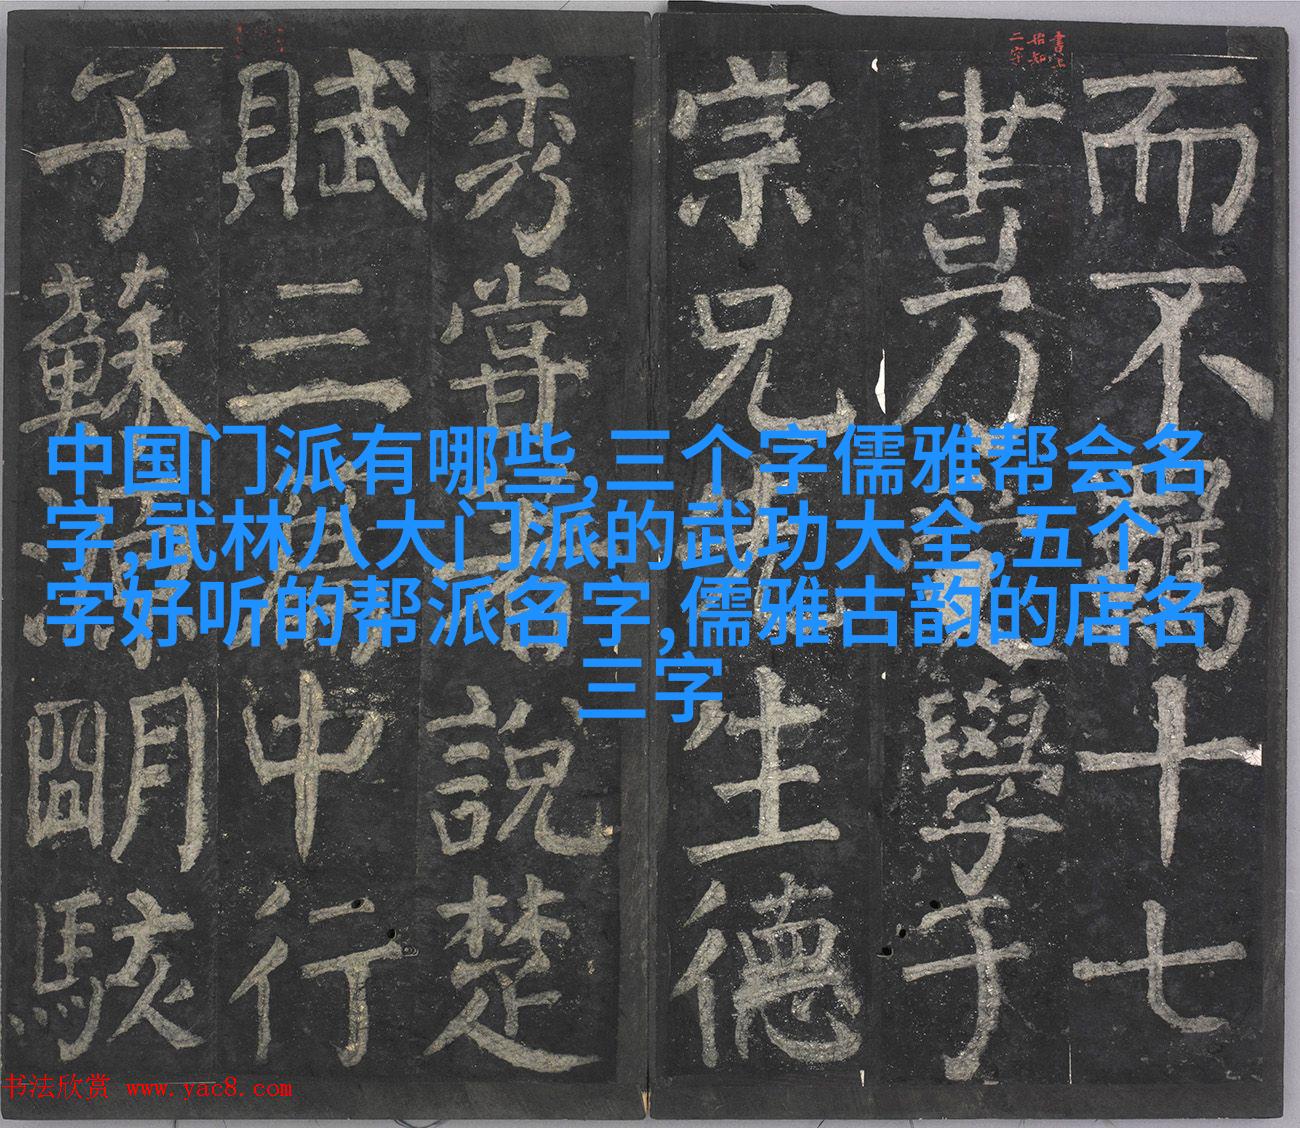 中国门派有哪些,三个字儒雅帮会名
字,武林八大门派的武功大全,五个
字好听的帮派名字,儒雅古韵的店名
三字
而不羈十七
書乃學于
宗兄先生德
秀嘗說楚
賦三中行
子蘇明駭
书法欣赏 www.yac8.com